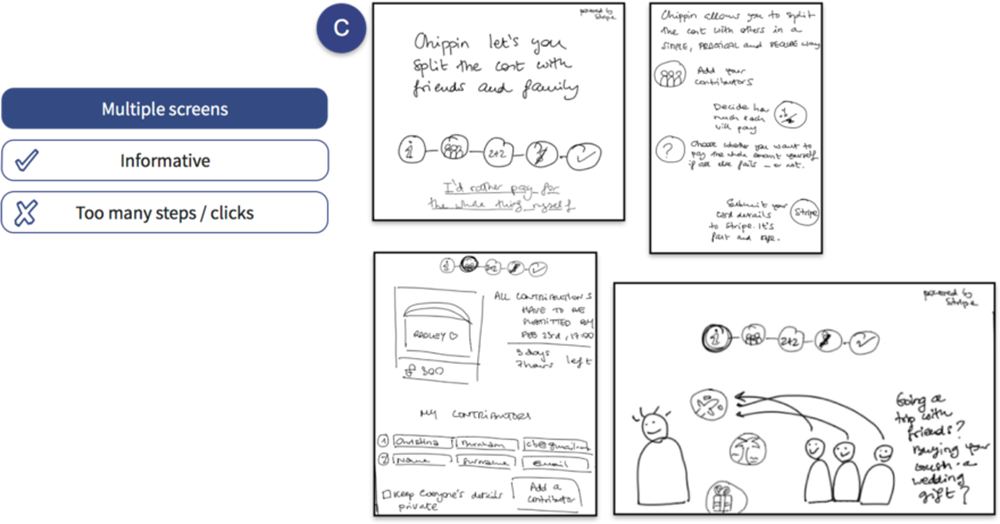 C
Multiple screens
Informative
Too many steps / clicks
powered by
Stripe
Chippin let's you
split the cost with
friends and family
i
2+2
I'd rather pay for
the whole thing myself
Chippin allows you to split
the cost with others in a
SIMPLE, PRACTICAL and SECURE way
Add your
contributors
Decide how
much each
will pay
?
Choose whether you want to
pay the whole amount yourself
if all else fails – or not.
Submit your
card details
to Stripe. It's
fast and safe.
Stripe
i
2+2
RADLEY
£ 300
ALL CONTRIBUTIONS
HAVE TO BE
SUBMITTED BY
FEB 23rd, 17:00
3 days
7 hours left
MY CONTRIBUTORS
1 Christina
2 Name Surname email
Keep everyone's details
private
Add a
contributor
powered by
Stripe
i
2+2
Going a
trip with
friends?
Buying your
cousin a
wedding
gift?